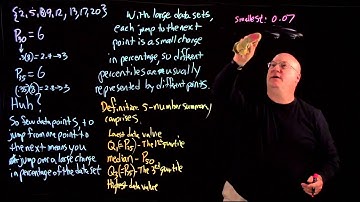 {2, 5, 6, 9, 12, 13, 17, 20}
P30 = 6
.3(8) = 2.4 → 3
P35 = 6
(.35)(8) = 2.8 → 3
Huh?
So few data points, to
jump from one point to
the next means you
jump over a large chunk
in percentage of the data set
With large data sets,
each jump to the next
point is a small change
in percentage, so different
percentiles are usually
represented by different points.
Definition: 5-number summary
comprises
Lowest data value
Q1 (=P25) - The 1st quartile
median - P50
Q3 (=P75) - The 3rd quartile
Highest data value
smallest: 0.07